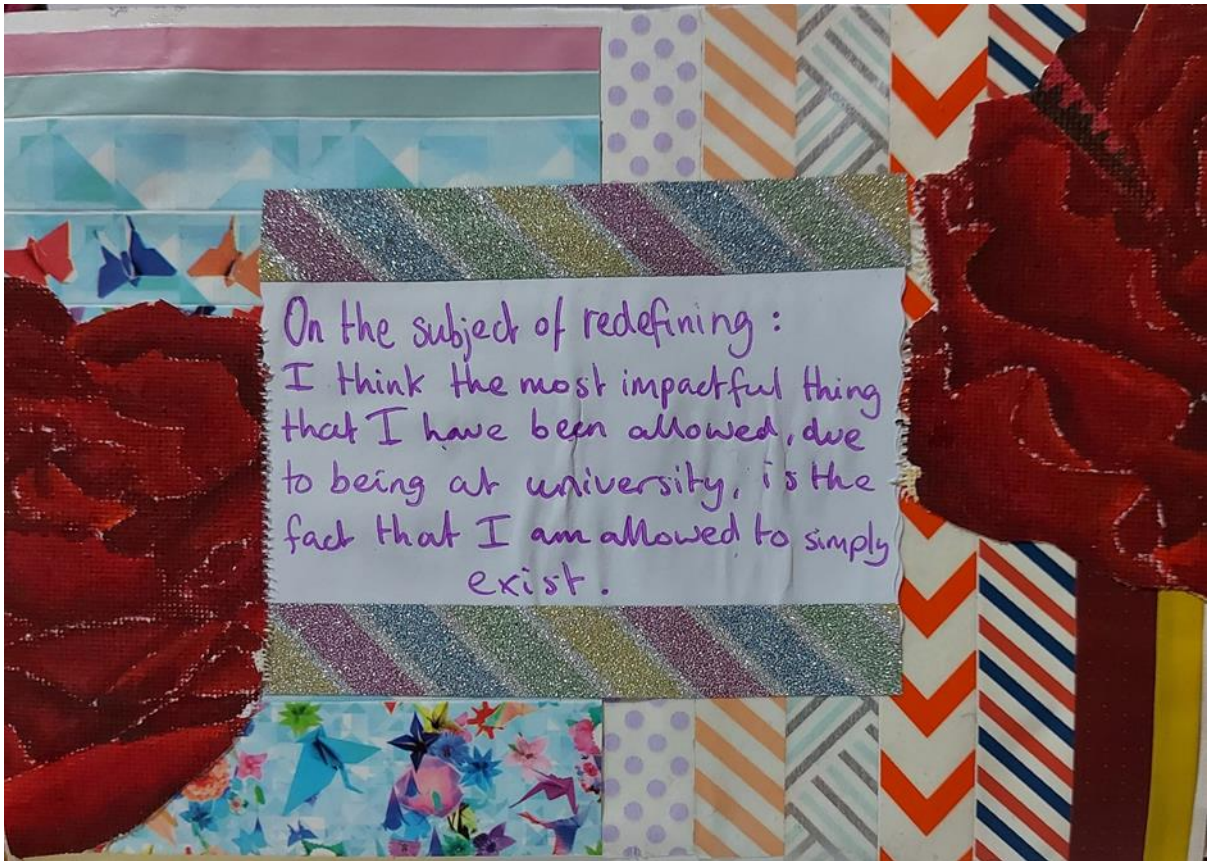 On the subject of redefining :
I think the most impactful thing
that I have been allowed, due
to being at university, is the
fact that I am allowed to simply
exist.